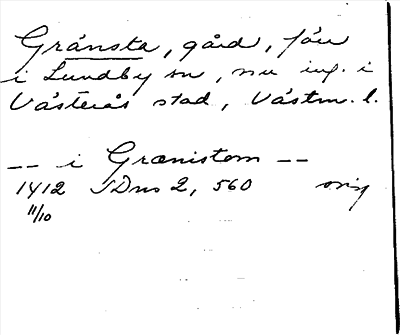 Gränsta, gård, förr
i Lundby sn, nu ing. i
Västerås stad, Västm. l.
-- i Grænistom --
1412 SDns 2, 560 orig
11/10